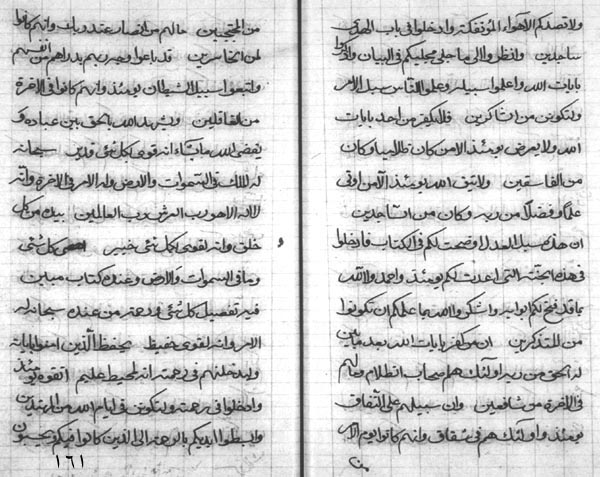 ولا تصدكم الاهواء المؤتفكة وادخلوا في باب الهدى
ساجدين وانظروا الى ما جلى مجليكم في البيان واذكروا
بايات الله واعلموا سبيله وعلموا الناس سبل الامر
ولتكونن من الشاكرين فلا يكفر من احد بايات
الله ولا يعرض يومئذ الا من كان ظالما وكان
من الفاسقين ولا يتق الله يومئذ الا من اوتي
علما وفضلا من ربه وكان من الساجدين
ان هذه سبل العدل اوضحت لكم في الكتاب فادخلوا
في هذه الجنة التي اعدت لكم يومئذ واحمدوا الله
بما قد فتح لكم ابوابه واشكروا الله بما علمكم ان تكونوا
من المتذكرين ان من كفر بايات الله بعد ما تبين
له الحق من ربه اولئك هم اصحاب الظلام وما لهم
في الاخرة من شافعين وان سبيلهم على النفاق
يومئذ واولئك هم في شقاق وانهم كانوا يوم الامر
من المحتجبين ما لهم من انصار عند ربك وانهم كانوا
لمن الخاسرين قد باعوا وجه ربهم بدراهم من انفسهم
واتبعوا سبيل الشيطان يومئذ وانهم كانوا في الاخرة
من الغافلين ويشهد الله بالحق بين عباده و
يقضي الله ما يشاء انه قوي كل شئ قدير سبحانه
له الملك في السموات والارض وله الامر في الاخرة وانه
لا اله الا هو رب العرش رب العالمين بيده من كل
خلق وانه لقوي لكل شئ خبير كل شئ
وما في السموات والارض وعنده كتاب مبين
فيه تفصيل كل شئ ورحمة من عنده سبحانه له
الامر وانه لقوي حفيظ يحفظ الذين امنوا باياته
وليدخلنهم في رحمته انه لمحيط عليم اتقوه يومئذ
وادخلوا في رحمته ولتكونن في ايام الله من المهتدين
وابسطوا ايديكم بالرحمة الى الذين كانوا فيكم
١٦١